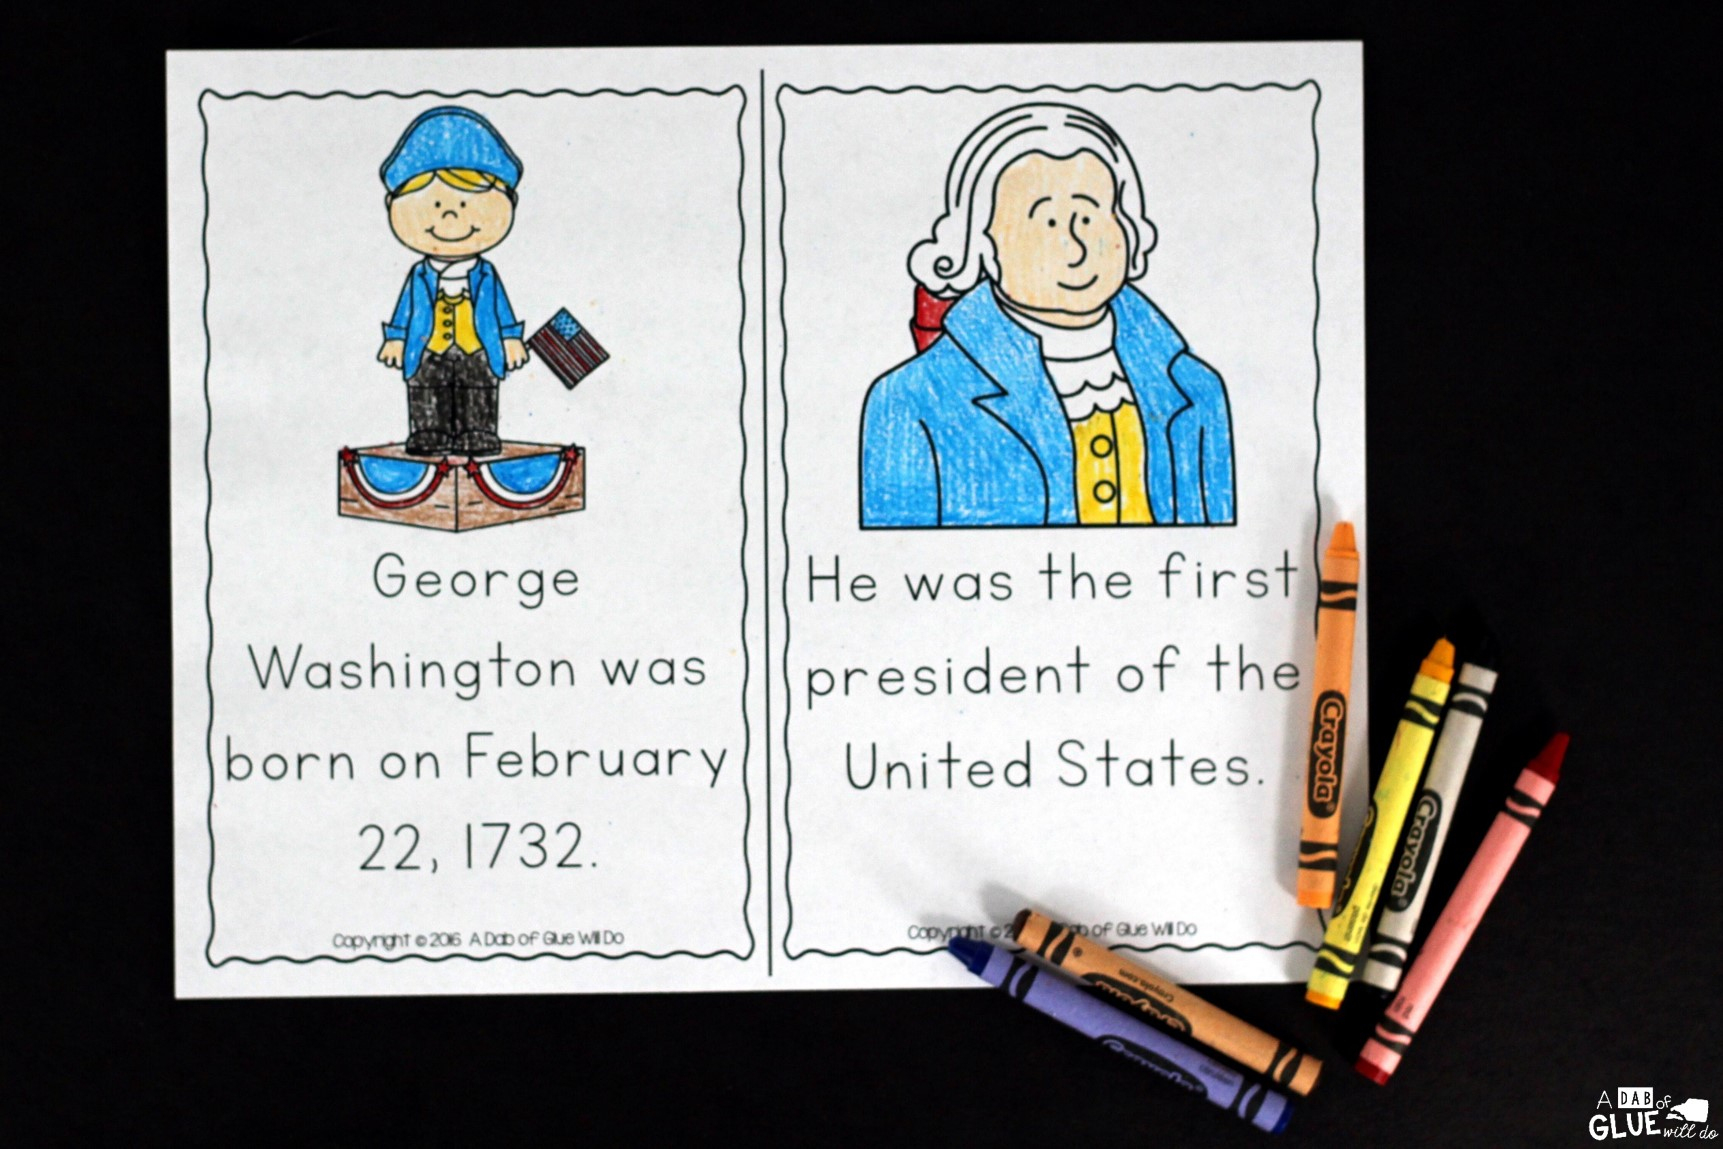 George
Washington was
born on February
22, 1732.
Copyright © 2016 A Dab of Glue Will Do
He was the first
president of the
United States.
Copyright © of Glue Will Do
Crayola
Crayola
Crayola
Crayola.com
Crayola
A DAB of
GLUE will do